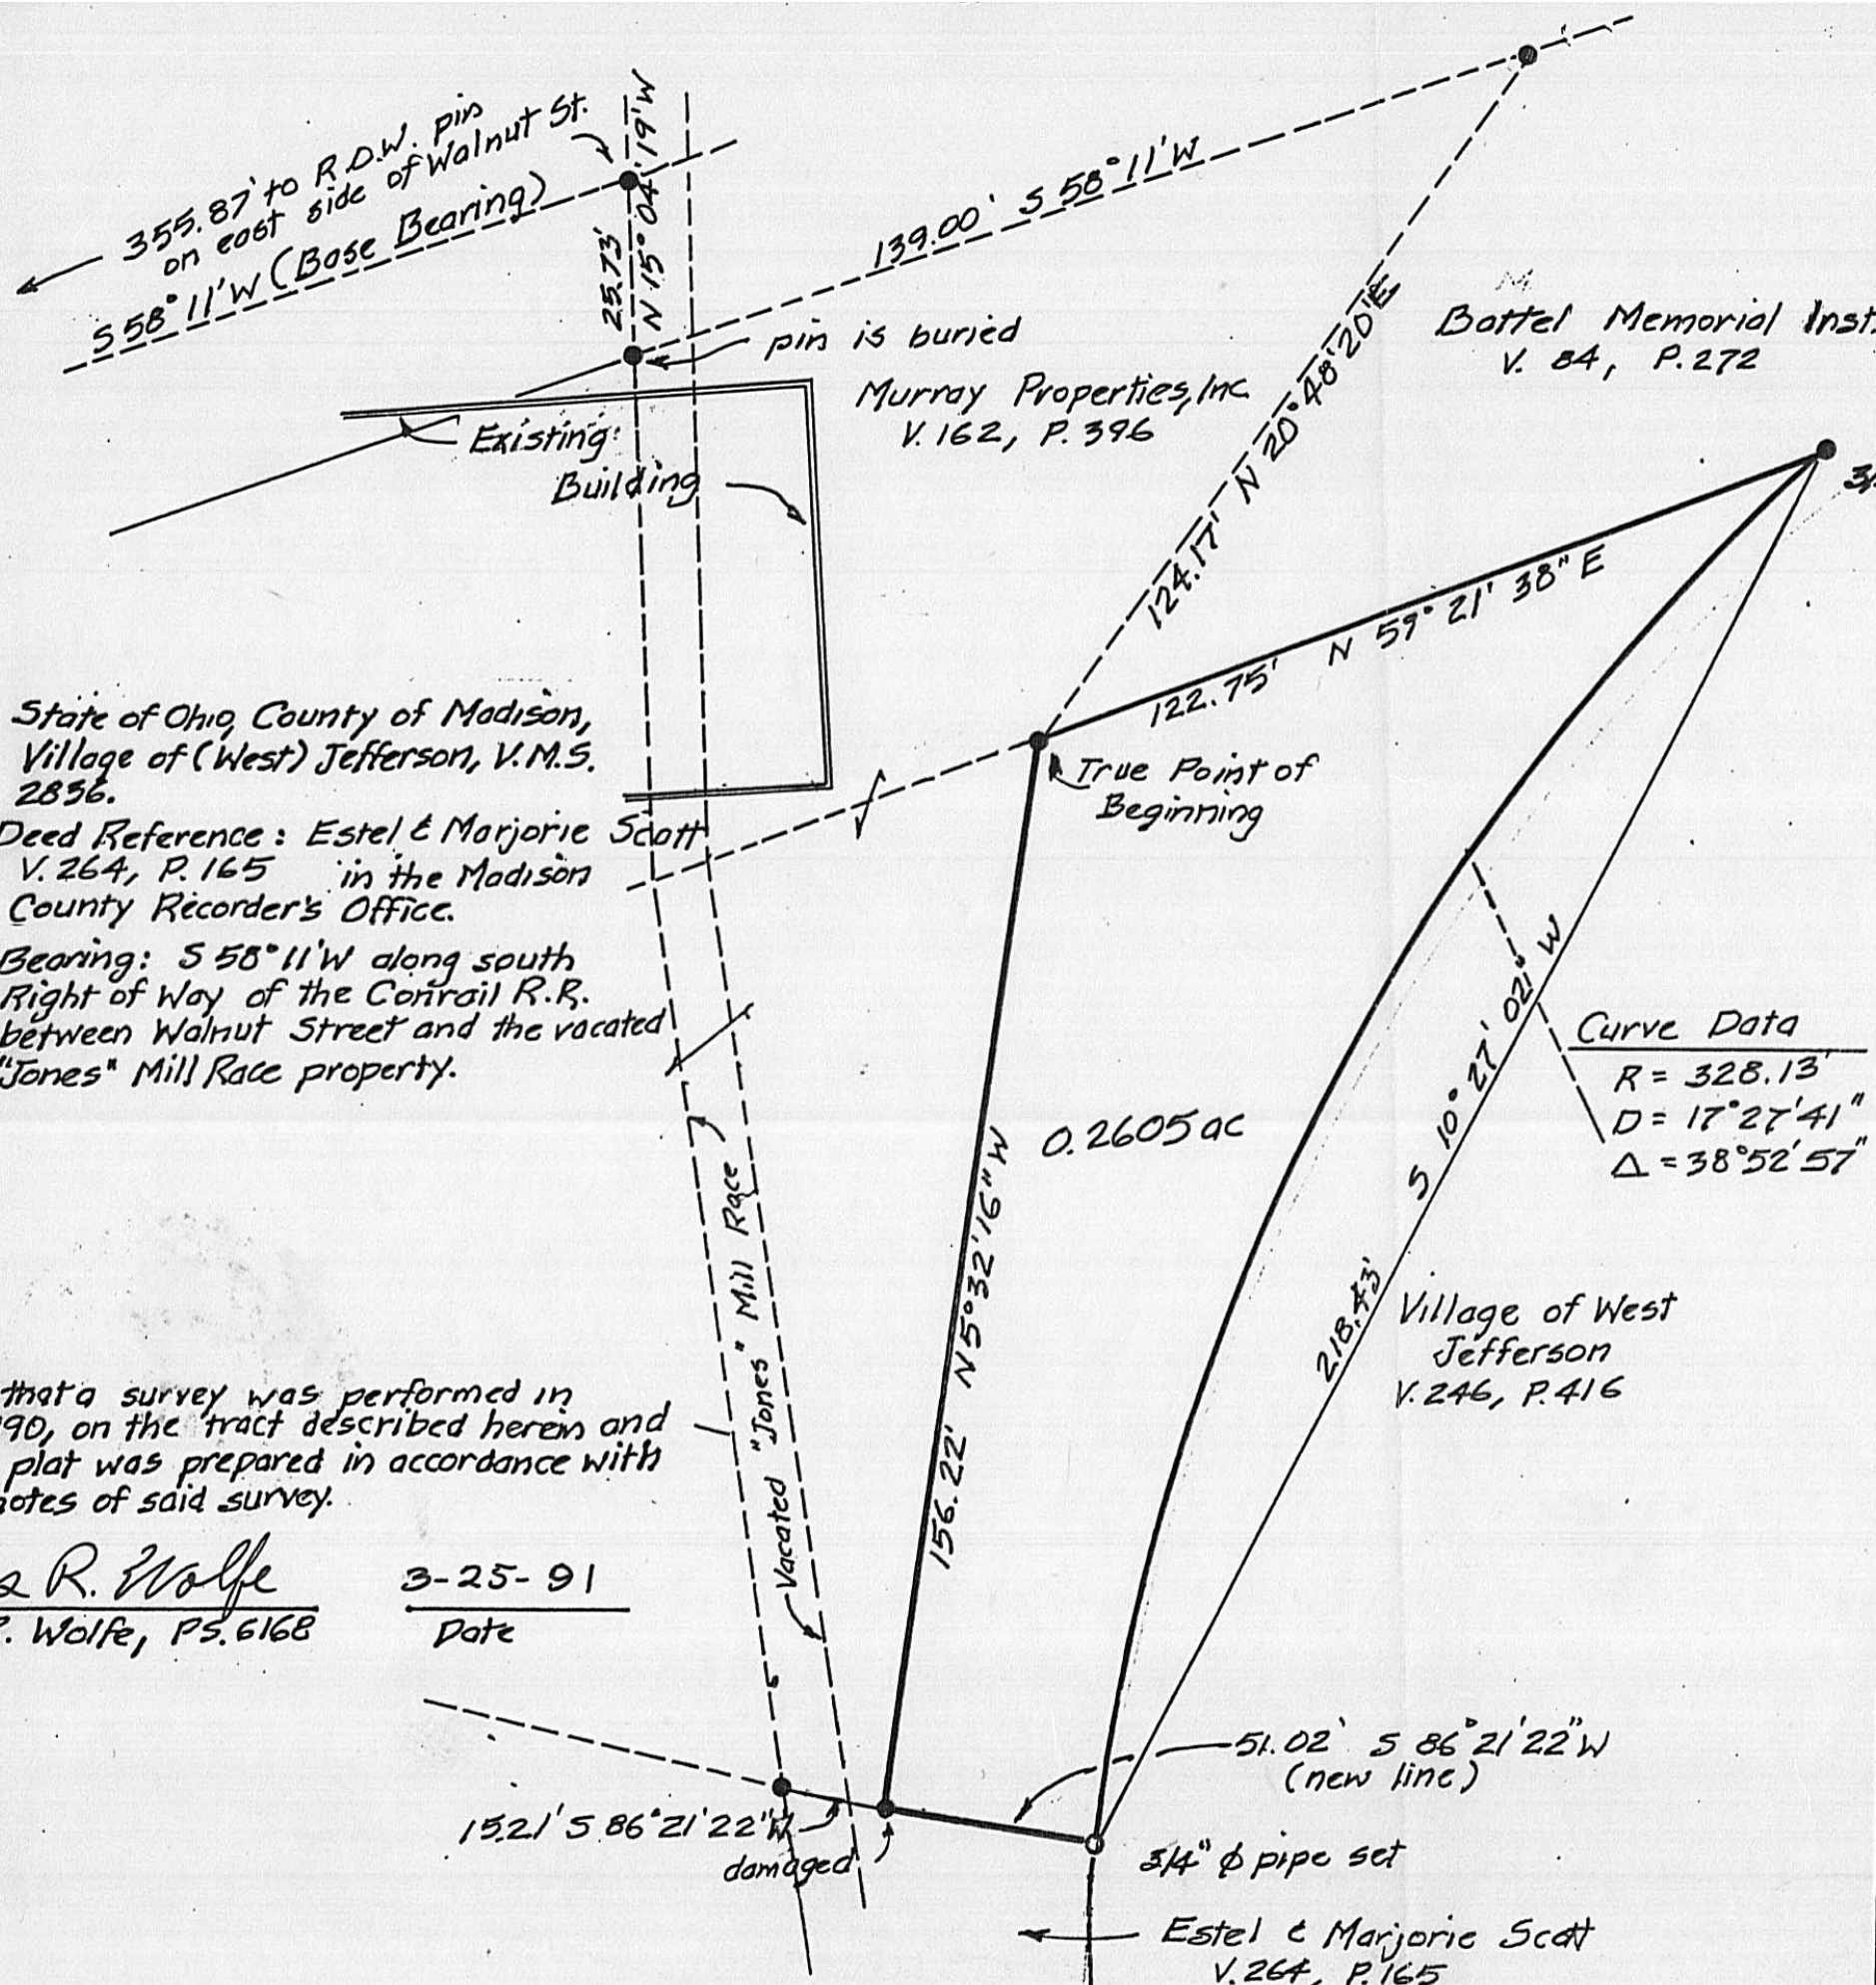 355.87' to R.O.W. pin
on east side of Walnut St.
S 58° 11' W (Base Bearing)
25.73'
N 15° 04' 19" W
139.00' S 58° 11' W
pin is buried
Murray Properties, Inc.
V. 162, P. 396
124.17' N 20° 48' 20" E
Battel Memorial Inst.
V. 84, P. 272
Existing
Building
122.75' N 59° 21' 38" E
True Point of
Beginning
State of Ohio, County of Madison,
Village of (West) Jefferson, V.M.S.
2836.
Deed Reference: Estel & Marjorie Scott
V. 264, P. 165 in the Madison
County Recorder's Office.
Bearing: S 58° 11' W along south
Right of Way of the Conrail R.R.
between Walnut Street and the vacated
"Jones" Mill Race property.
Curve Data
R = 328.13'
D = 17° 27' 41"
Δ = 38° 52' 57"
0.2605 ac
156.22' N 5° 32' 16" W
218.43' S 10° 27' 02" W
Vacated "Jones" Mill Race
Village of West
Jefferson
V. 246, P. 416
that a survey was performed in
90, on the tract described herein and
plat was prepared in accordance with
notes of said survey.
R. Wolfe
3-25-91
Wolfe, PS. 6168
Date
51.02' S 86° 21' 22" W
(new line)
15.21' S 86° 21' 22" W
damaged
3/4" ϕ pipe set
Estel & Marjorie Scott
V. 264, P. 165